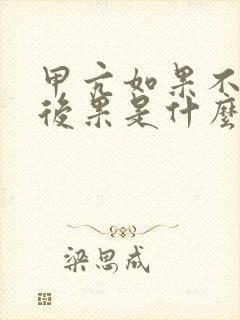 甲亢如果不
後果是什麼
梁思成